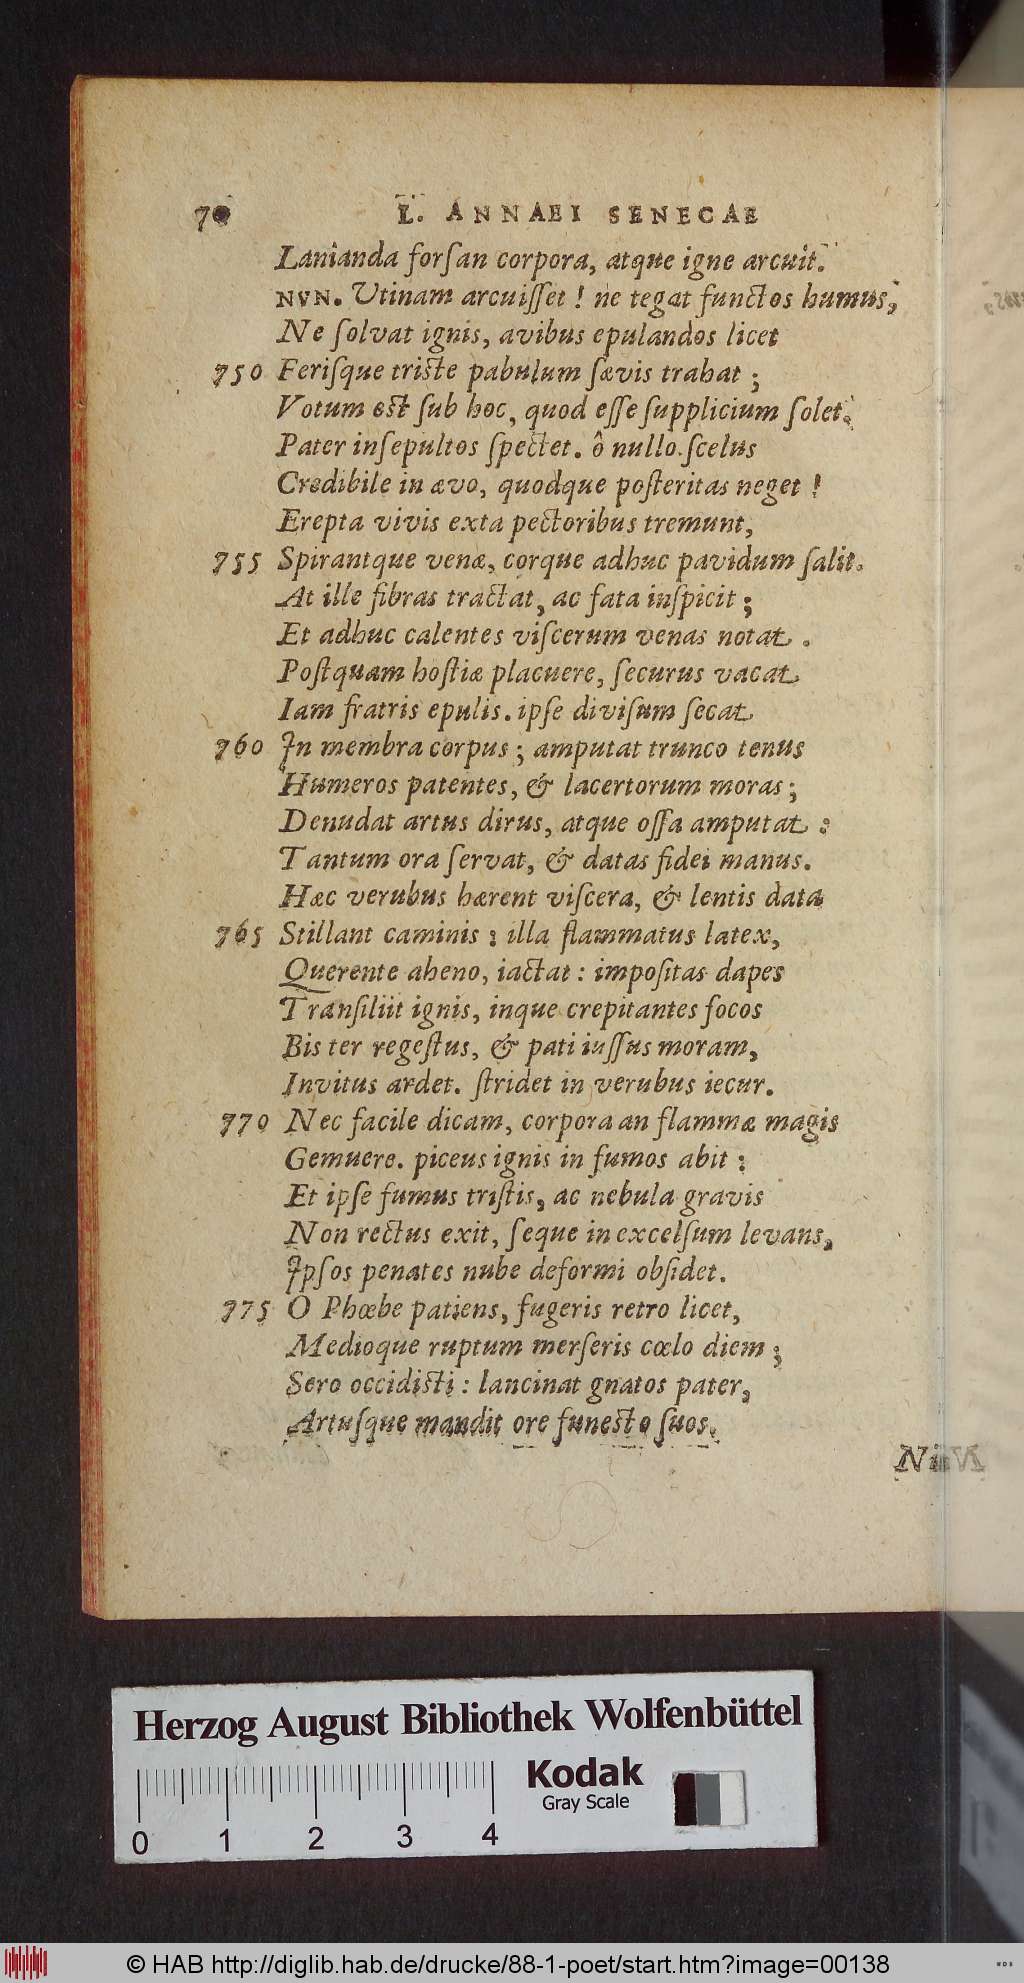 70 L. ANNAEI SENECAE
Lanianda forſan corpora, atque igne arcuit.
NVN. Utinam arcuiſſet ! ne tegat functos humus,
Ne ſolvat ignis, avibus epulandos licet
750 Feriſque triſte pabulum ſævis trahat ;
Votum eſt ſub hoc, quod eſſe ſupplicium ſolet.
Pater inſepultos ſpectet. ô nullo ſcelus
Credibile in ævo, quodque poſteritas neget !
Erepta vivis exta pectoribus tremunt,
755 Spirantque venæ, corque adhuc pavidum ſalit.
At ille fibras tractat, ac fata inſpicit ;
Et adhuc calentes viſcerum venas notat .
Poſtquam hoſtiæ placuere, ſecurus vacat
Iam fratris epulis. ipſe diviſum ſecat
760 In membra corpus ; amputat trunco tenus
Humeros patentes, & lacertorum moras ;
Denudat artus dirus, atque oſſa amputat :
Tantum ora ſervat, & datas fidei manus.
Hæc verubus hærent viſcera, & lentis data
765 Stillant caminis : illa flammatus latex,
Querente aheno, iactat : impoſitas dapes
Tranſiliit ignis, inque crepitantes focos
Bis ter regeſtus, & pati iuſſus moram,
Invitus ardet. ſtridet in verubus iecur.
770 Nec facile dicam, corpora an flammæ magis
Gemuere. piceus ignis in fumos abit :
Et ipſe fumus triſtis, ac nebula gravis
Non rectus exit, ſeque in excelſum levans,
Ipſos penates nube deformi obſidet.
775 O Phœbe patiens, fugeris retro licet,
Medioque ruptum merſeris cœlo diem ;
Sero occidiſti : lancinat gnatos pater,
Artuſque mandit ore funeſto ſuos.
Herzog August Bibliothek Wolfenbüttel
Kodak
Gray Scale
0 1 2 3 4
© HAB http://diglib.hab.de/drucke/88-1-poet/start.htm?image=00138